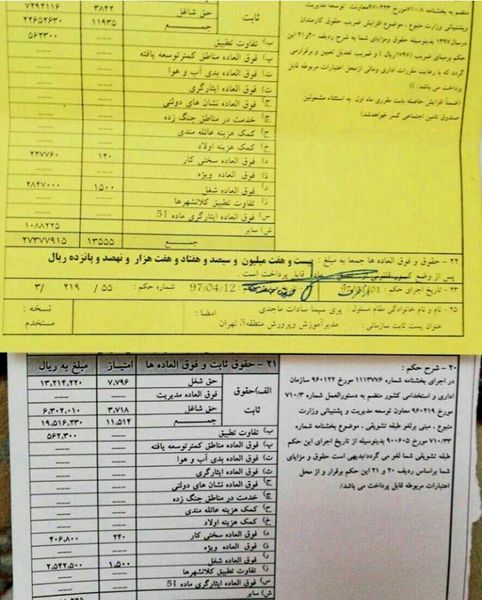 منضم به بخشنامه شماره ۷۱۰/۸مورخ۹۷/۰۲/۲۳معاونت توسعه مدیریت
وپشتیبانی وزارت متبوع ، موضوع افزایش ضریب حقوق کارمندان
درسال۱۳۹۷ بدینوسیله حقوق ومزایای شما به شرح ردیف ۲۰و۲۱ این
حکم برمبنای ضریب (۱۷۹۷ریال ) و ضریب تعدیل تعیین و برقرارمی
گردد که با رعایت مقررات اداری ومالی ازمحل اعتبارات مربوطه قابل
پرداخت می باشد /ن
(ضمنا افزایش حاصله بابت مقرری ماه اول به استثناء مشمولین
صندوق تامین اجتماعی کسر خواهدشد/)
ثابت حق شاغل ۳۸۴۲ ۷۲۹۲۱۱۶
جمــع ۱۱۹۳۵ ۲۲۶۵۲۶۳۰
ب) تفاوت تطبیق ۵۶۲۳۰۰
پ) فوق العاده مناطق کمترتوسعه یافته ----
ت) فوق العاده بدی آب و هوا ----
ث) فوق العاده ایثارگری ----
ج) فوق العاده نشان های دولتی ----
چ) خدمت در مناطق جنگ زده ----
ح) کمک هزینه عائله مندی ----
خ) کمک هزینه اولاد ----
د) فوق العاده سختی کار ۱۲۰ ۲۲۷۷۶۰
ذ) فوق العاده ویژه ----
ر) فوق العاده شغل ۱۵۰۰ ۲۸۴۷۰۰۰
ز) تفاوت تطبیق کلانشهرها ----
س) فوق العاده ایثارگری ماده 51 ----
ش) سایر ۱۰۸۸۲۲۵
جمــع ۱۳۵۵۵ ۲۷۳۷۷۹۱۵
۲۲- حقوق و فوق العاده ها جمعا به مبلغ : بیست و هفت میلیون و سیصد و هفتاد و هفت هزار و نهصد و پانزده ریال
پس از وضع کسور قانونی قابل پرداخت است .
۲۳- تاریخ اجرای حکم : 97/01/01 97/04/12 شماره حکم : ۵۵/ ۲۱۹ /۳
۲۵- نام و نام خانوادگی مقام مسئول : پری سیما سادات ماجدی امضا : نسخه :
عنوان پست سازمانی : مدیرآموزش وپرورش منطقه3 تهران مستخدم
۲۰- شرح حکم :
در اجرای بخشنامه شماره ۱۱۱۳۷۷۶ مورخ ۹۶۰۱۲۲ سازمان
اداری و استخدامی کشور منضم به دستورالعمل شماره ۷۱۰/۳
مورخ ۹۶۰۲۱۹ معاون توسعه مدیریت و پشتیبانی وزارت
متبوع ، مبنی برلغو طبقه تشویقی ، موضوع بخشنامه شماره
۷۱۰/۳۳ مورخ ۹۰۰۶۰۵ بدینوسیله از تاریخ اجرای این حکم
طبقه تشویقی شما لغو می گردد/بدیهی است حقوق و مزایای
شما براساس ردیف ۲۰ و ۲۱ این حکم برقرار و از محل
اعتبارات مربوطه قابل پرداخت می باشد/
۲۱- حقوق ثابت و فوق العاده ها امتیاز مبلغ به ریال
الف)حقوق ثابت
حق شغل ۷,۷۹۶ ۱۳,۲۱۴,۲۲۰
فوق العاده مدیریت ----
حق شاغل ۳,۷۱۸ ۶,۳۰۲,۰۱۰
جمــع ۱۱,۵۱۴ ۱۹,۵۱۶,۲۳۰
ب) تفاوت تطبیق ۵۶۲,۳۰۰
پ) فوق العاده مناطق کمترتوسعه یافته ----
ت) فوق العاده بدی آب و هوا ----
ث) فوق العاده ایثارگری ----
ج) فوق العاده نشان های دولتی ----
چ) خدمت در مناطق جنگ زده ----
ح) کمک هزینه عائله مندی ----
خ) کمک هزینه اولاد ----
د) فوق العاده سختی کار ۲۴۰ ۴۰۶,۸۰۰
ذ) فوق العاده ویژه ----
ر) فوق العاده شغل ۱,۵۰۰ ۲,۵۴۲,۵۰۰
ز) تفاوت تطبیق کلانشهرها ----
س) فوق العاده ایثارگری ماده 51 ----
ش) سایر